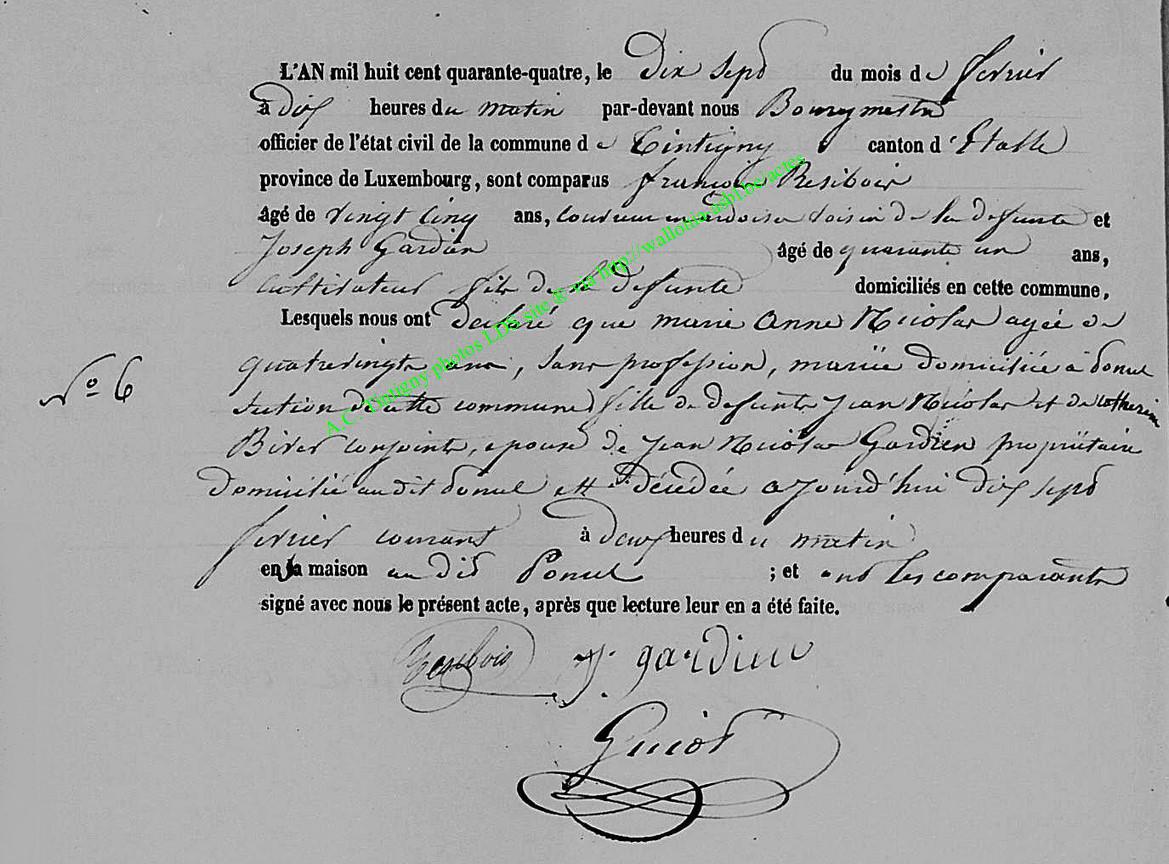 L'AN mil huit cent quarante-quatre, le Dix Sept du mois de fevrier
à Dix heures du matin par-devant nous Bourgmestre
officier de l'état civil de la commune de Tintigny canton d'Etalle
province de Luxembourg, sont comparus françois Resibois
âgé de vingt cinq ans, couvreur en ardoise voisin de la defunte et
Joseph Gardien âgé de quarante un ans,
Cultivateur fils de la defunte domiciliés en cette commune,
Lesquels nous ont declaré que marie Anne Nicolas agée de
N° 6
quatrevingts ans, sans profession, mariée domiciliée à
section de cette commune, fille de defunts Jean Nicolas et de Catherine
conjoints, epouse de Jean Nicolas Gardien propriétaire
Domicilié au dit est décédée aujourd'hui dix sept
fevrier courant à deux heures du matin
en sa maison au dit ; et ont les comparants
signé avec nous le présent acte, après que lecture leur en a été faite.
Resibois J. gardien
Guiot
A.C. Tintigny photos LDS site & via http://wallonia.asbl.be/actes